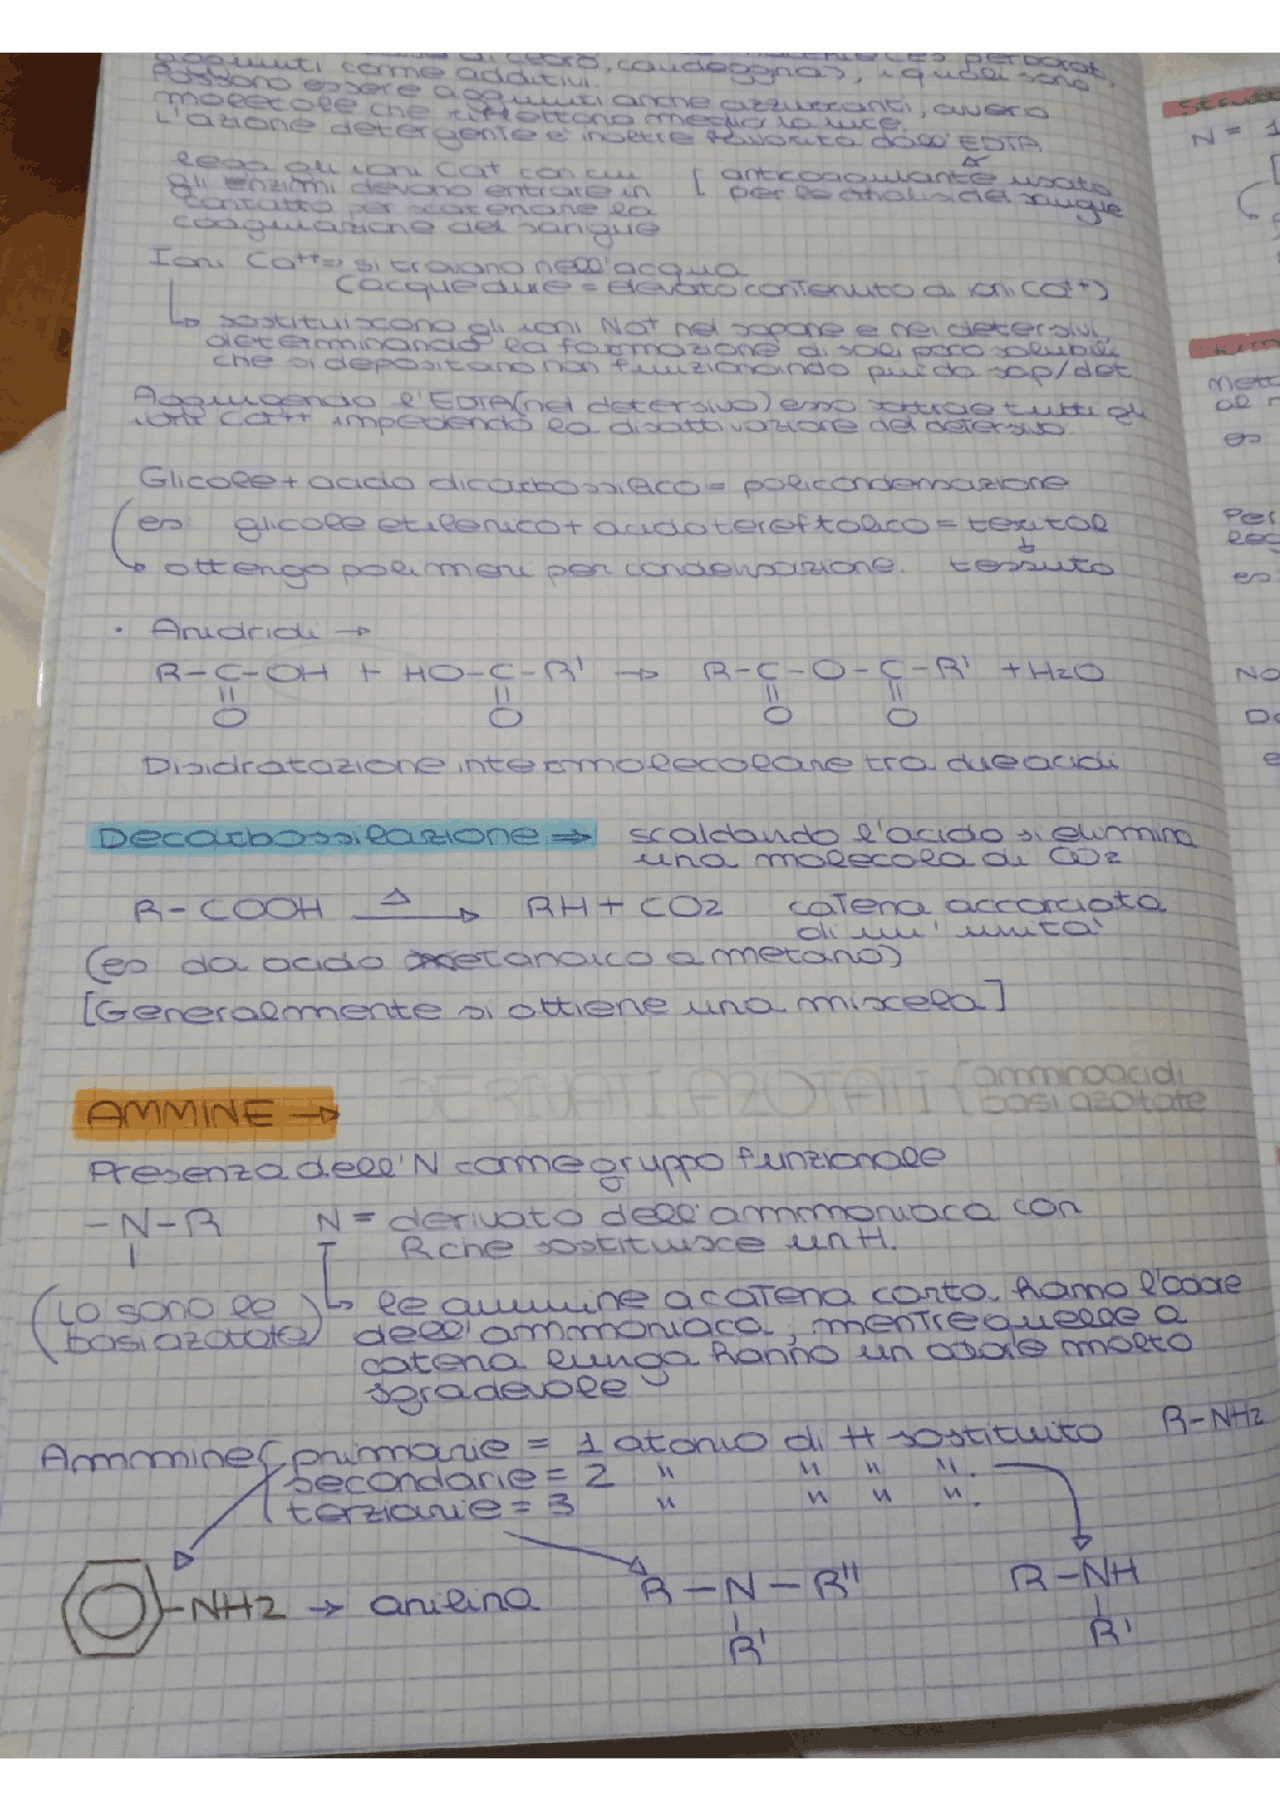 aggiunti come additivi.
Possono essere aggiunti anche azzurranti, ovvero
molecole che riflettono meglio la luce.
L'azione detergente è inoltre favorita dall'EDTA
lega gli ioni Ca+ con cui
gli enzimi devono entrare in
contatto per scatenare la
coagulazione del sangue
[anticoagulante usato
per le analisi del sangue
Ioni Ca++ = si trovano nell'acqua
(acque dure = elevato contenuto di ioni Ca++)
↳ sostituiscono gli ioni Na+ nel sapone e nei detersivi,
determinando la formazione di sali poco solubili
che si depositano non funzionando più da sap/det.
Aggiungendo l'EDTA (nel detersivo) esso sottrae tutti gli
ioni Ca++ impedendo la disattivazione del detersivo.
Glicole + acido dicarbossilico = policondensazione
(es: glicole etilenico + acido tereftalico = terital
↳ ottengo polimeri per condensazione. tessuto
· Anidridi →
R-C-OH + HO-C-R' → R-C-O-C-R' + H2O
O O O O
Disidratazione intermolecolare tra due acidi
Decarbossilazione → scaldando l'acido si elimina
una molecola di CO2
R-COOH Δ→ RH + CO2 catena accorciata
di un' unità
(es da acido etanoico a metano)
[Generalmente si ottiene una miscela]
DERIVATI AZOTATI (amminoacidi
basi azotate
AMMINE →
Presenza dell'N come gruppo funzionale
-N-R N = derivato dell'ammoniaca con
R che sostituisce un H.
(Lo sono le
basi azotate)
↳ le ammine a catena corta hanno l'odore
dell'ammoniaca, mentre quelle a
catena lunga hanno un odore molto
sgradevole
Ammine( primarie = 1 atomo di H sostituito R-NH2
secondarie = 2 " " " ".
terziarie = 3 " " " ".
-NH2 → anilina
R-N-R"
R'
R-NH
R'
N = 1
Mett
al
es
Per
es
No